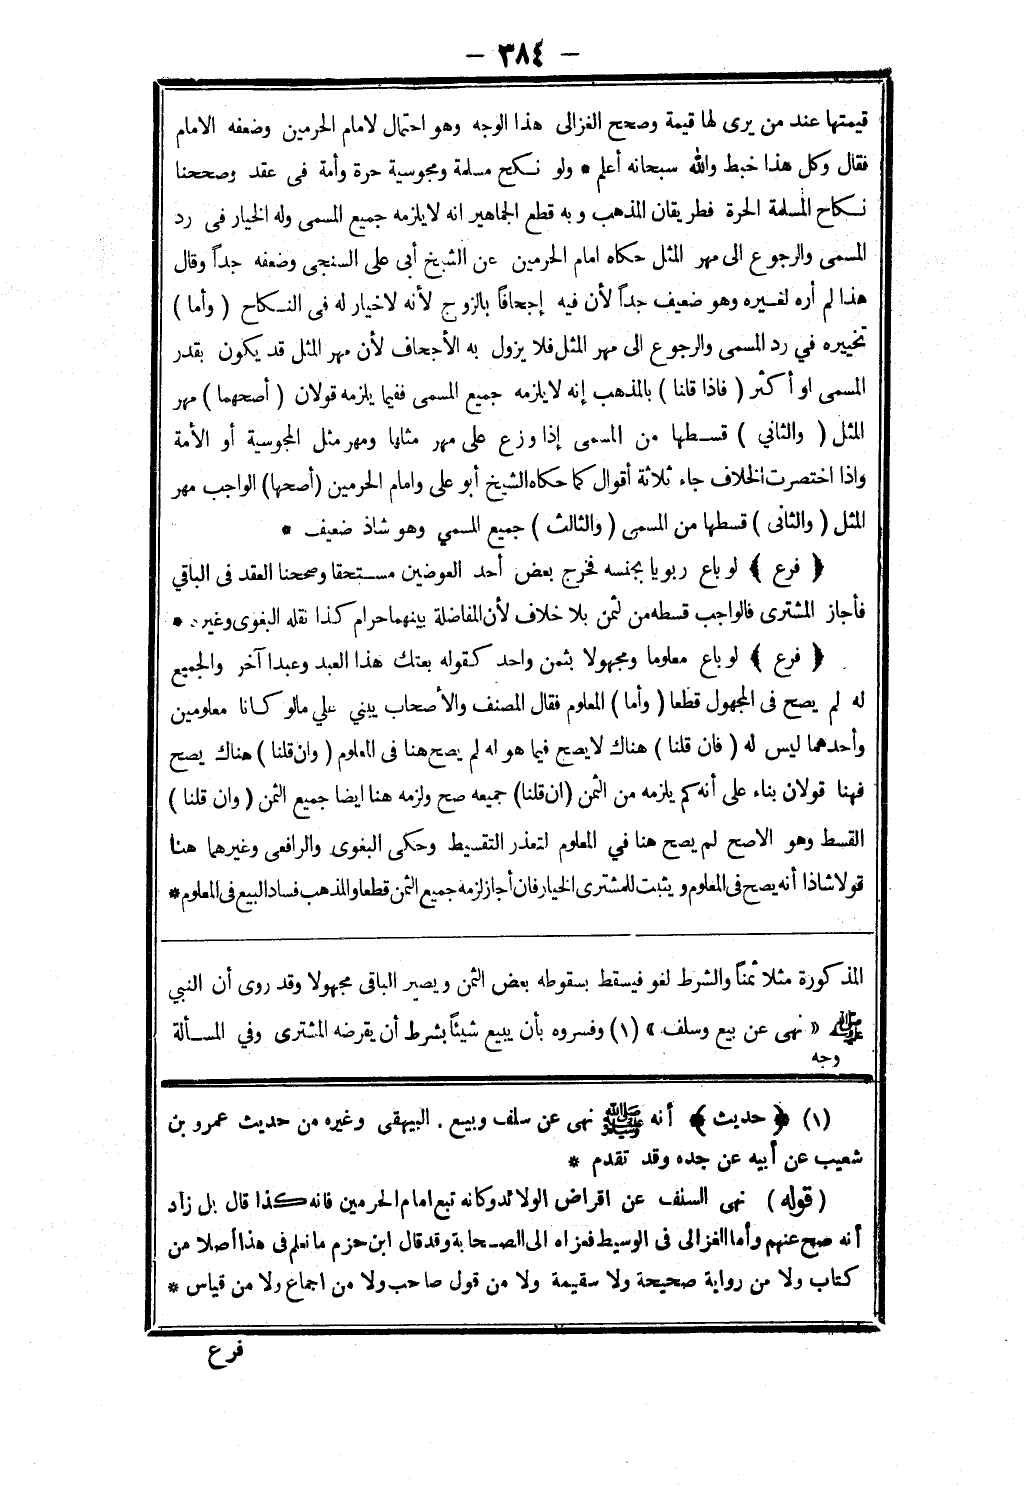 — ٣٨٤ —
قيمتها عند من يرى لها قيمة وصحح الغزالى هذا الوجه وهو احتمال لامام الحرمين وضعفه الامام
فقال وكل هذا خبط والله سبحانه أعلم * ولو نكح مسلمة ومجوسية حرة وأمة فى عقد وصححنا
نكاح المسلمة الحرة فطريقان المذهب وبه قطع الجماهير انه لايلزمه جميع المسمى وله الخيار فى رد
المسمى والرجوع الى مهر المثل حكاه امام الحرمين عن الشيخ أبى على السنجى وضعفه جداً وقال
هذا لم أره لغيره وهو ضعيف جداً لأن فيه إجحافاً بالزوج لأنه لاخيار له فى النكاح ( وأما )
تخييره في رد المسمى والرجوع الى مهر المثل فلا يزول به الأجحاف لأن مهر المثل قد يكون بقدر
المسمى او أكثر ( فاذا قلنا ) بالمذهب إنه لايلزمه جميع المسمى ففيما يلزمه قولان ( أصحهما ) مهر
المثل ( والثاني ) قسطها من المسمى إذا وزع على مهر مثلها ومهر مثل المجوسية أو الأمة
واذا اختصرت الخلاف جاء ثلاثة أقوال كما حكاه الشيخ أبو على وامام الحرمين (أصحها) الواجب مهر
المثل ( والثانى ) قسطها من المسمى ( والثالث ) جميع المسمي وهو شاذ ضعيف *
﴿ فرع ﴾ لو باع ربويا بجنسه فخرج بعض أحد العوضين مستحقا وصححنا العقد فى الباقي
فأجاز المشترى فالواجب قسطه من الثمن بلا خلاف لأن المفاضلة بينهما حرام كذا نقله البغوى وغيره *
﴿ فرع ﴾ لو باع معلوما ومجهولا بثمن واحد كقوله بعتك هذا العبد وعبدا آخر والجميع
له لم يصح فى المجهول قطعا ( وأما ) المعلوم فقال المصنف والأصحاب يبني علي مالو كانا معلومين
وأحدهما ليس له ( فان قلنا ) هناك لايصح فيما هو له لم يصح هنا فى المعلوم ( وان قلنا ) هناك يصح
فهنا قولان بناء على أنه كم يلزمه من الثمن (ان قلنا) جميعه صح ولزمه هنا ايضا جميع الثمن ( وان قلنا )
القسط وهو الاصح لم يصح هنا في المعلوم لتعذر التقسيط وحكى البغوى والرافعى وغيرهما هنا
قولا شاذا أنه يصح فى المعلوم ويثبت للمشترى الخيار فان أجاز لزمه جميع الثمن قطعا والمذهب فساد البيع فى المعلوم *
المذكورة مثلا ثمناً والشرط لغو فيسقط بسقوطه بعض الثمن ويصير الباقى مجهولا وقد روى أن النبي
ﷺ « نهى عن بيع وسلف » (١) وفسروه بأن يبيع شيئاً بشرط أن يقرضه المشترى وفي المسألة
وجه
(١) ﴿ حديث ﴾ أنه ﷺ نهى عن سلف وبيع . البيهقى وغيره من حديث عمرو بن
شعيب عن أبيه عن جده وقد تقدم *
( قوله ) نهى السلف عن اقراض الولائد وكانه تبع امام الحرمين فانه كذا قال بل زاد
أنه صح عنهم وأما الغزالى فى الوسيط فعزاه الى الصحابة وقد قال ابن حزم ما نعلم فى هذا أصلا من
كتاب ولا من رواية صحيحة ولا سقيمة ولا من قول صاحب ولا من اجماع ولا من قياس *
فرع